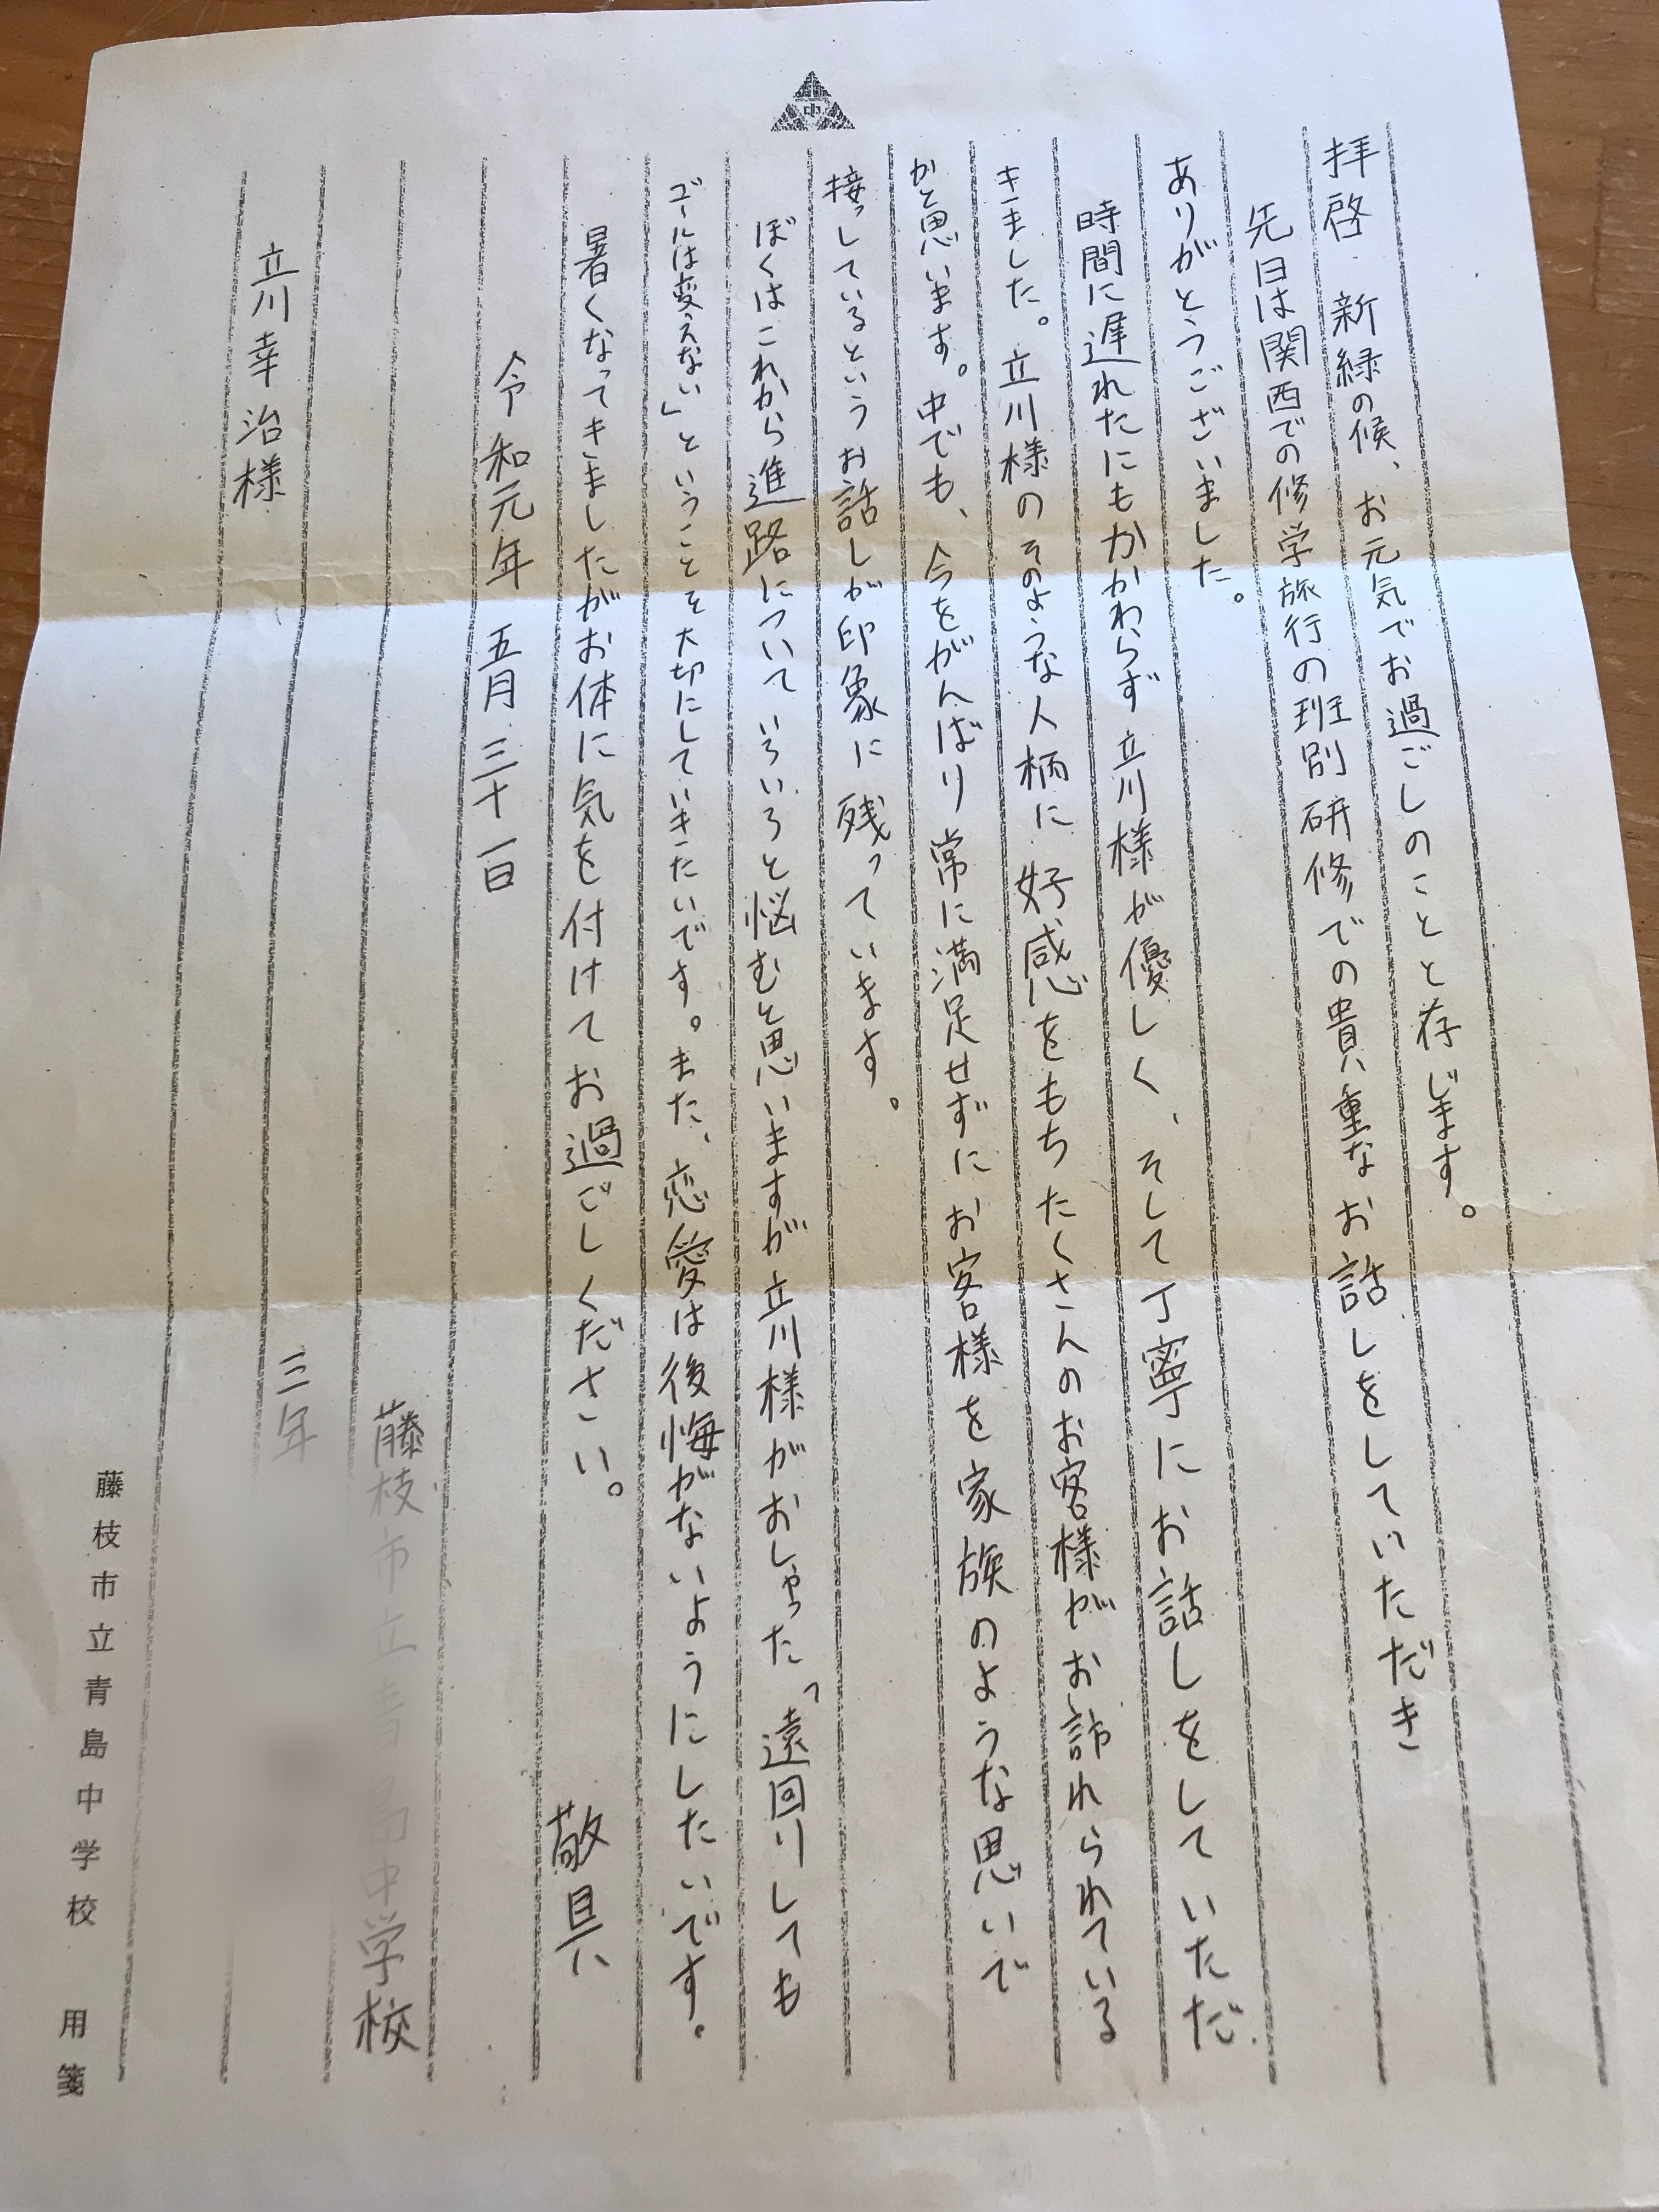 中
拝啓 新緑の候、お元気でお過ごしのことと存じます。
先日は関西での修学旅行の班別研修での貴重なお話しをしていただき
ありがとうございました。
時間に遅れたにもかかわらず立川様が優しく、そして丁寧にお話しをしていただ
きました。立川様のそのような人柄に好感をもちたくさんのお客様がお訪れられている
かと思います。中でも、今をがんばり常に満足せずにお客様を家族のような思いで
接っしているというお話しが印象に残っています。
ぼくはこれから進路についていろいろと悩むと思いますが立川様がおしゃった「遠回りしても
ゴールは変えない」ということを大切にしていきたいです。また、恋愛は後悔がないようにしたいです。
暑くなってきましたがお体に気を付けてお過ごしください。
敬具
令和元年 五月三十一日
藤枝市立青島中学校
三年
立川幸治様
藤枝市立青島中学校 用箋